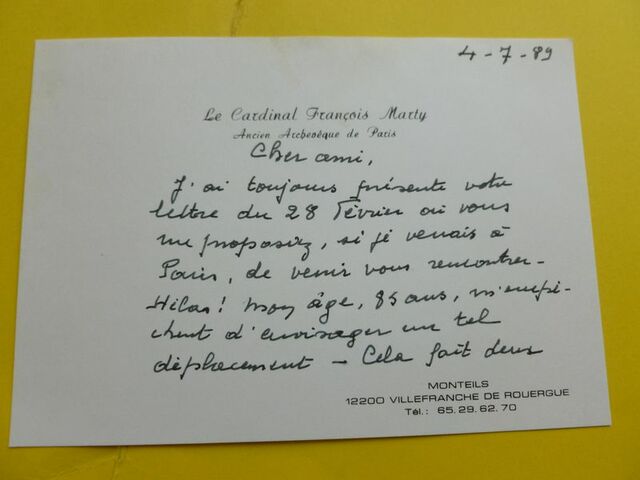 4-7-89
Le Cardinal François Marty
Ancien Archevêque de Paris
Cher ami,
J'ai toujours présente votre
lettre du 28 Février où vous
me proposiez, si je venais à
Paris, de venir vous rencontrer-
Hélas! mon âge, 85 ans, m'empê-
chent d'envisager un tel
déplacement - Cela fait deux
MONTEILS
12200 VILLEFRANCHE DE ROUERGUE
Tél.: 65.29.62.70